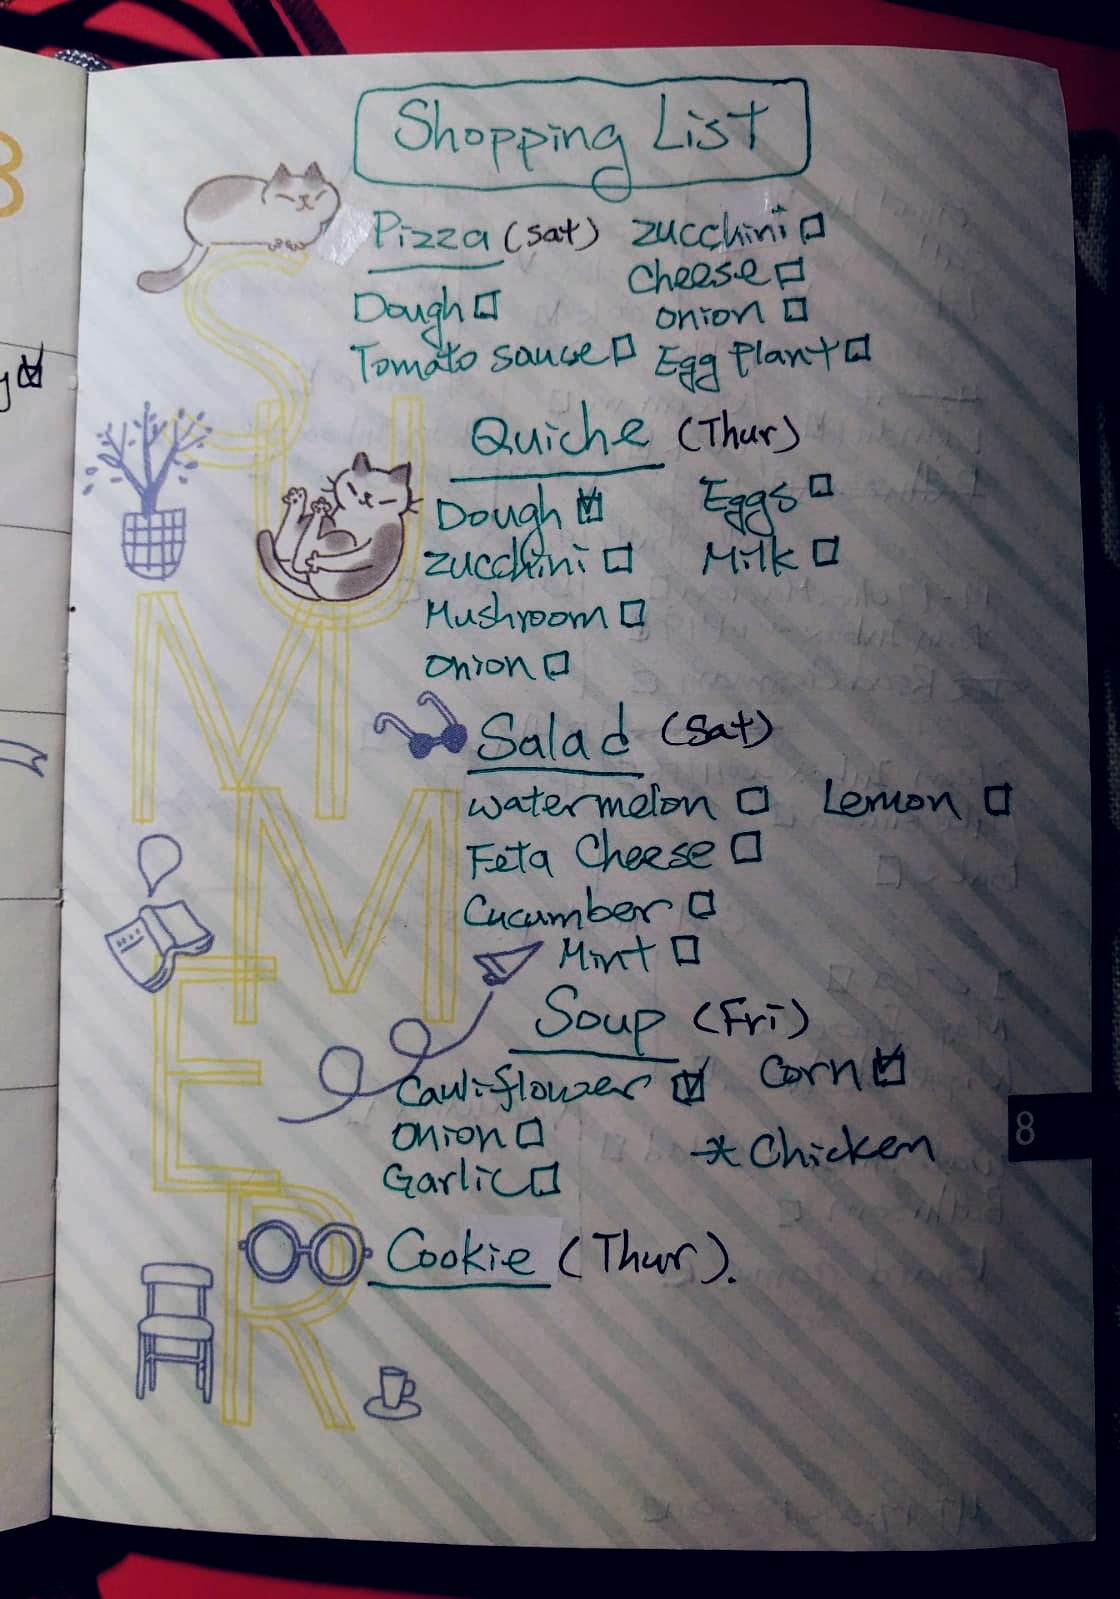 Shopping List
Pizza (Sat)
Dough ☐
Tomato sauce ☐
zucchini ☐
Cheese ☐
onion ☐
Egg Plant ☐
Quiche (Thur)
Dough ☑
zucchini ☐
Mushroom ☐
onion ☐
Eggs ☐
Milk ☐
Salad (Sat)
watermelon ☐ Lemon ☐
Feta Cheese ☐
Cucumber ☐
Mint ☐
Soup (Fri)
Cauliflower ☑ Corn ☑
onion ☐
Garlic ☐
* Chicken
Cookie (Thur).
SUMMER
8